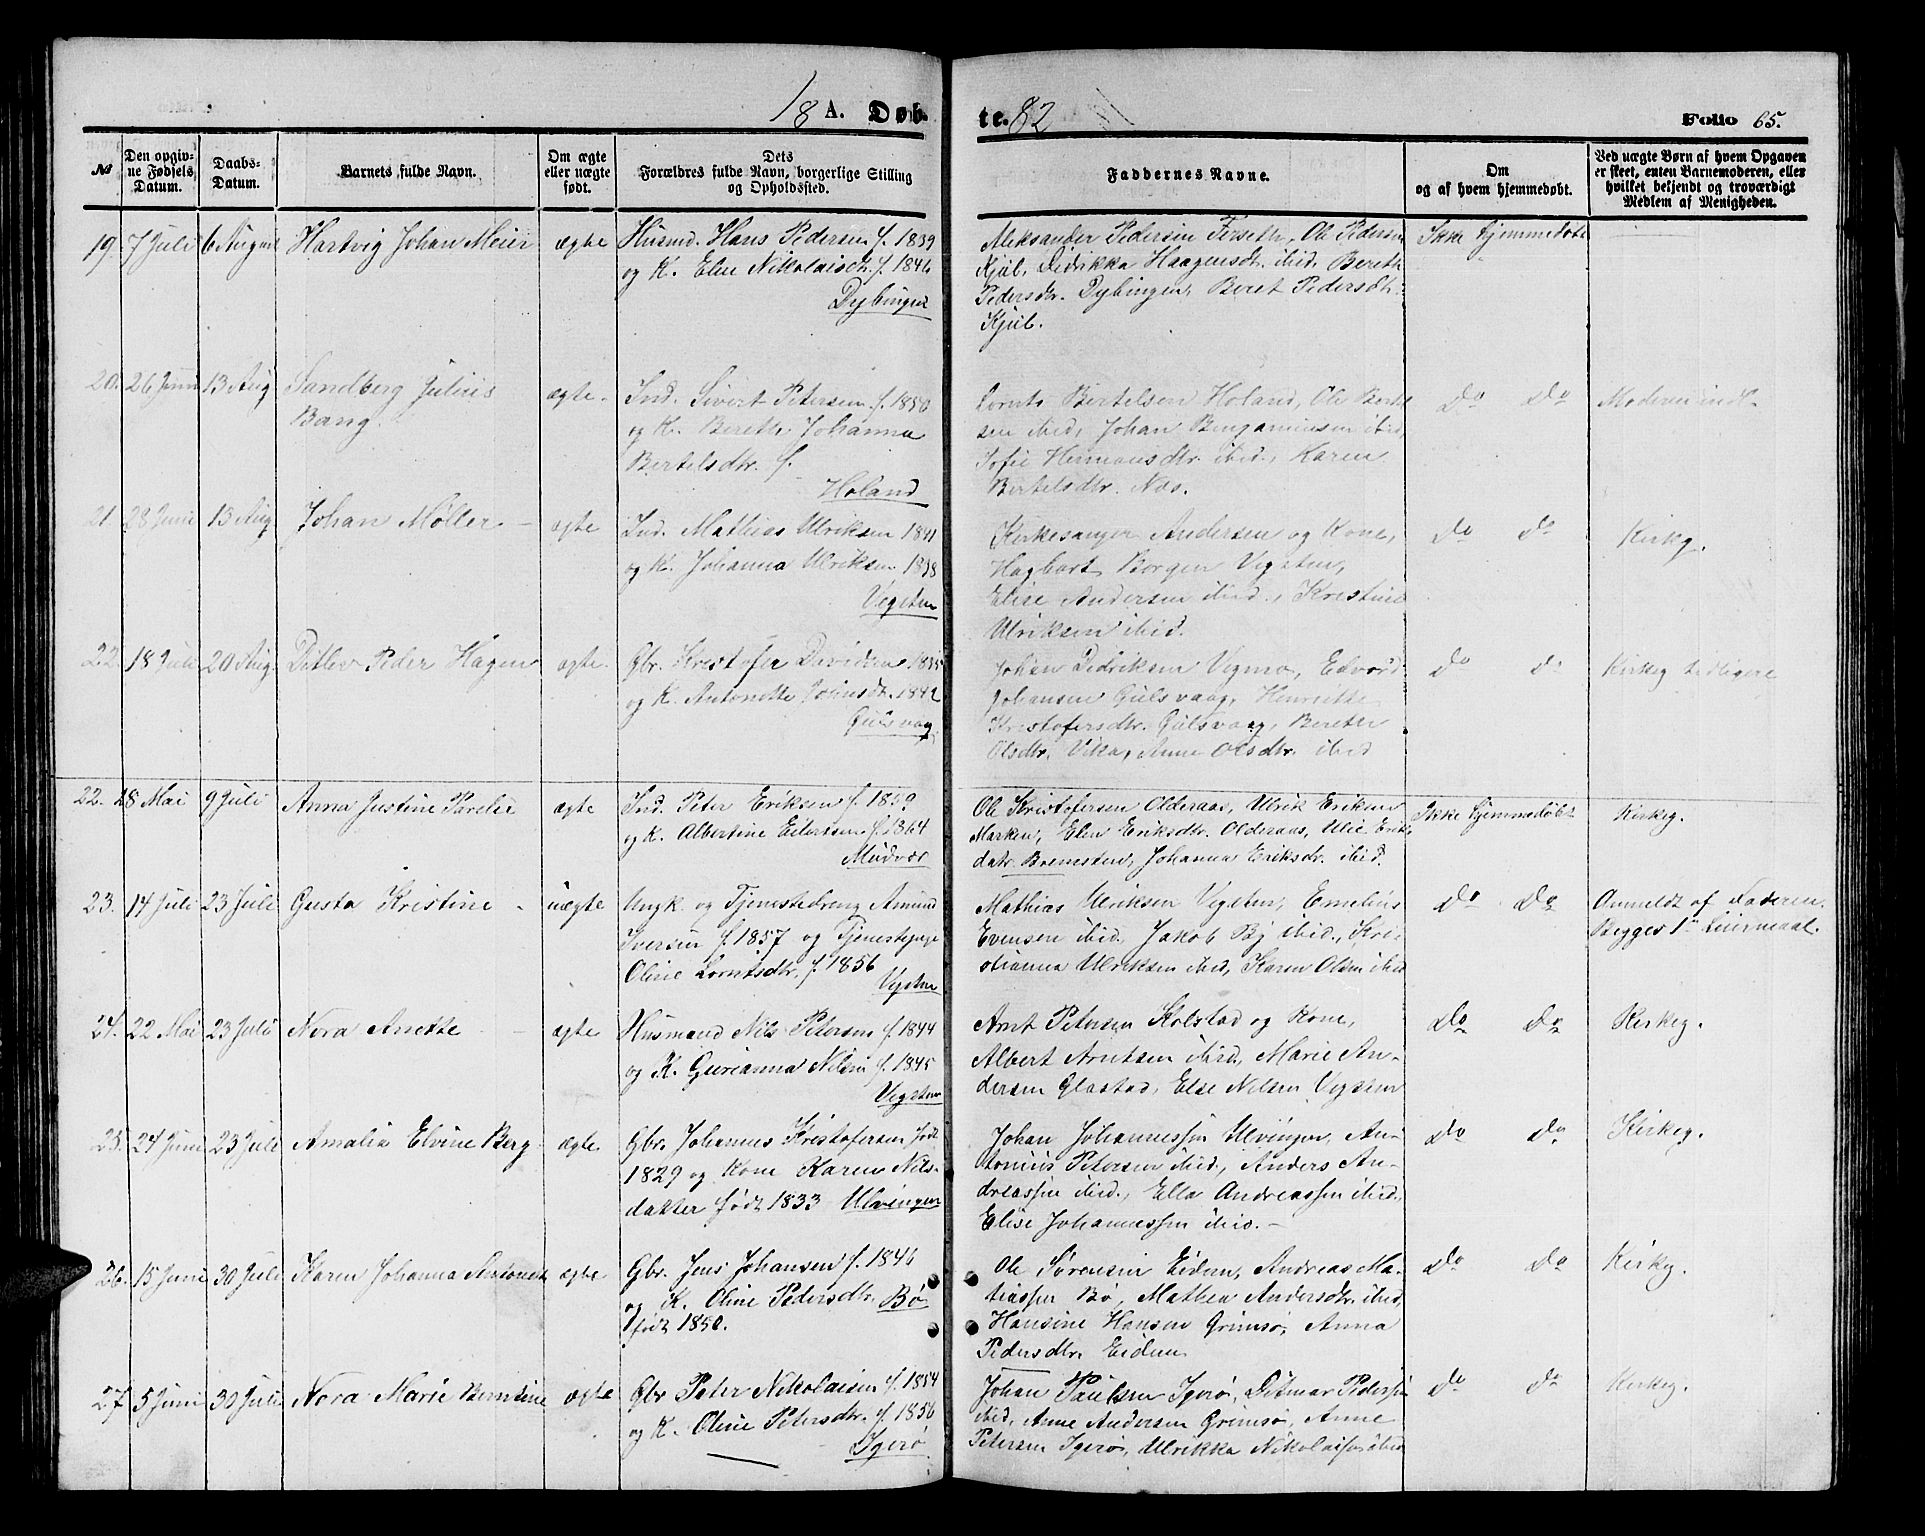 18 A. Døb-
te. 82
Folio 65.
№
Den opgiv-
ne Fødsels
Datum.
Daabs-
Datum.
Barnets fulde Navn.
Om ægte
eller uægte
født.
Dets
Forældres fulde Navn, borgerlige Stilling
og Opholdssted.
Faddernes Navne.
Om
og af hvem hjemmedøbt.
Ved uægte Børn af hvem Opgaven
er skeet, enten Barnemoderen, eller
hvilket bekjendt og troværdigt
Medlem af Menigheden.
19. 7 Juli 6 August Hartvig Johan Meier ægte
Husmd. Hans Pedersen f. 1839
og K. Elen Nikolaisdtr. f. 1846
Dybingen
Aleksander Pedersen Forseth, Ole Pedersen
Kjul, Didrikka Haagensdtr. ibid. Bereth
Pedersdtr. Dybingen, Beret Pedersdtr.
Kjul.
Ikke hjemmedøbt
20. 26 Juni 13 Aug Sandberg Julius
Bang.
ægte.
Ind. Sivert Petersen f. 1850
og K. Bereth Johanna
Bertelsdtr. f.
Holand
Lornts Bertelsen Holand, Ole Bertel-
sen ibid, Johan Bengaminsen ibid,
Sofie Hermansdtr. ibid., Karen
Bertelsdtr. Nos.
Do Do
21. 28 Juni 13 Aug Johan Møller - ægte
Ind. Mathias Ulriksen 1841
og K. Johanna Ulriksen 1838
Vegsten
Kirkesanger Andersen og Kone,
Hagbart Borgen Vegsten,
Elise Andersen ibid., Kristine
Ulriksen ibid.
Do Do
Kirkg.
22. 18 Juli 20 Aug. Ditlev Peder Hagen ægte.
Gbr. Kristofer Davidsen 1835
og K. Antonette Johnsdtr. 1842
Gulsvaag
Johan Didriksen Vegmo, Edvard
Johansen Gulsvaag, Henriette
Kristofersdtr. Gulsvaag, Berethe
Olsdtr. Vika, Anne Olsdtr. ibid
Do Do
Kirkeg tidligere
22. 28 Mai 9 Juli Anna Justine Parelie ægte
Ind. Peter Eriksen f. 1859
og K. Albertine Eilertsen f. 1864
Mudvær
Ole Kristofersen Olderaas, Ulrik Eriksen
Marken, Elen Eriksdtr. Olderaas, Ulie Eriks
datr. Bremsten, Johanna Eriksdtr. ibid.
Ikke hjemmedøbt
Kirkeg.
23. 14 Juli 23 Juli Gusta Kristine - uægte
Ungk. og Tjenestedreng Amund
Iversen f. 1857 og Tjenestepige
Oline Lorntsdtr. f. 1856
Vegsten
Mathias Ulriksen Vegsten, Emelius
Evensen ibid, Jakob By ibid., Kri-
stianna Ulriksen ibid, Karen Olsen ibid
Do Do
Anmeldt af Faderen.
Begges 1ste Leiermaal.
24. 22 Mai 23 Juli Nora Anette - ægte
Husmand Nils Petersen f. 1844
og K. Gurianna Nilsen f. 1845
Vegsten
Arnt Petersen Kolstad og Kone,
Albert Arntsen ibid, Marie An-
dersen Glastad, Else Nilsen Vegsten
Do Do
Kirkeg.
25. 24 Juni 23 Juli Amalia Elvine Berg ægte.
Gbr. Johannes Kristofersen født
1829 og Kone Karen Nils-
datter født 1833 Ulvingen
Johan Johannessen Ulvingen, An-
tonius Petersen ibid., Anders An-
dreassen ibid., Ella Andreassen ibid,
Elise Johannessen ibid. -
Do Do
Kirkeg.
26. 15 Juni 30 Juli Karen Johanna Antonette ægte
Gbr. Jens Johansen f. 1846
og K. Oline Pedersdtr. Bø
født 1850.
Ole Sørensen Eidem, Andreas Ma-
tiassen Bø, Mathea Andersdtr. ibid,
Hansine Hansen Grimsø, Anna
Pedersdtr. Eidem
Do Do
Kirkg.
27 5 Juni 30 Juli Nora Marie Berntine ægte
Gbr Peter Nikolaisen f. 1854
og K. Oline Petersdtr. f. 1856
Igerø
Johan Paulsen Igerø, Ditmar Pedersen
ibid, Anne Andersen Grimsø, Anne
Petersen Igerø, Ulrikka Nikolaisen ibid
Do Do
Kirkeg.